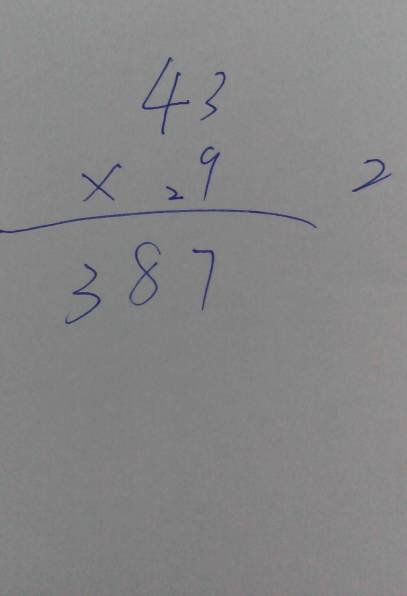 43
× ₂9 2
387